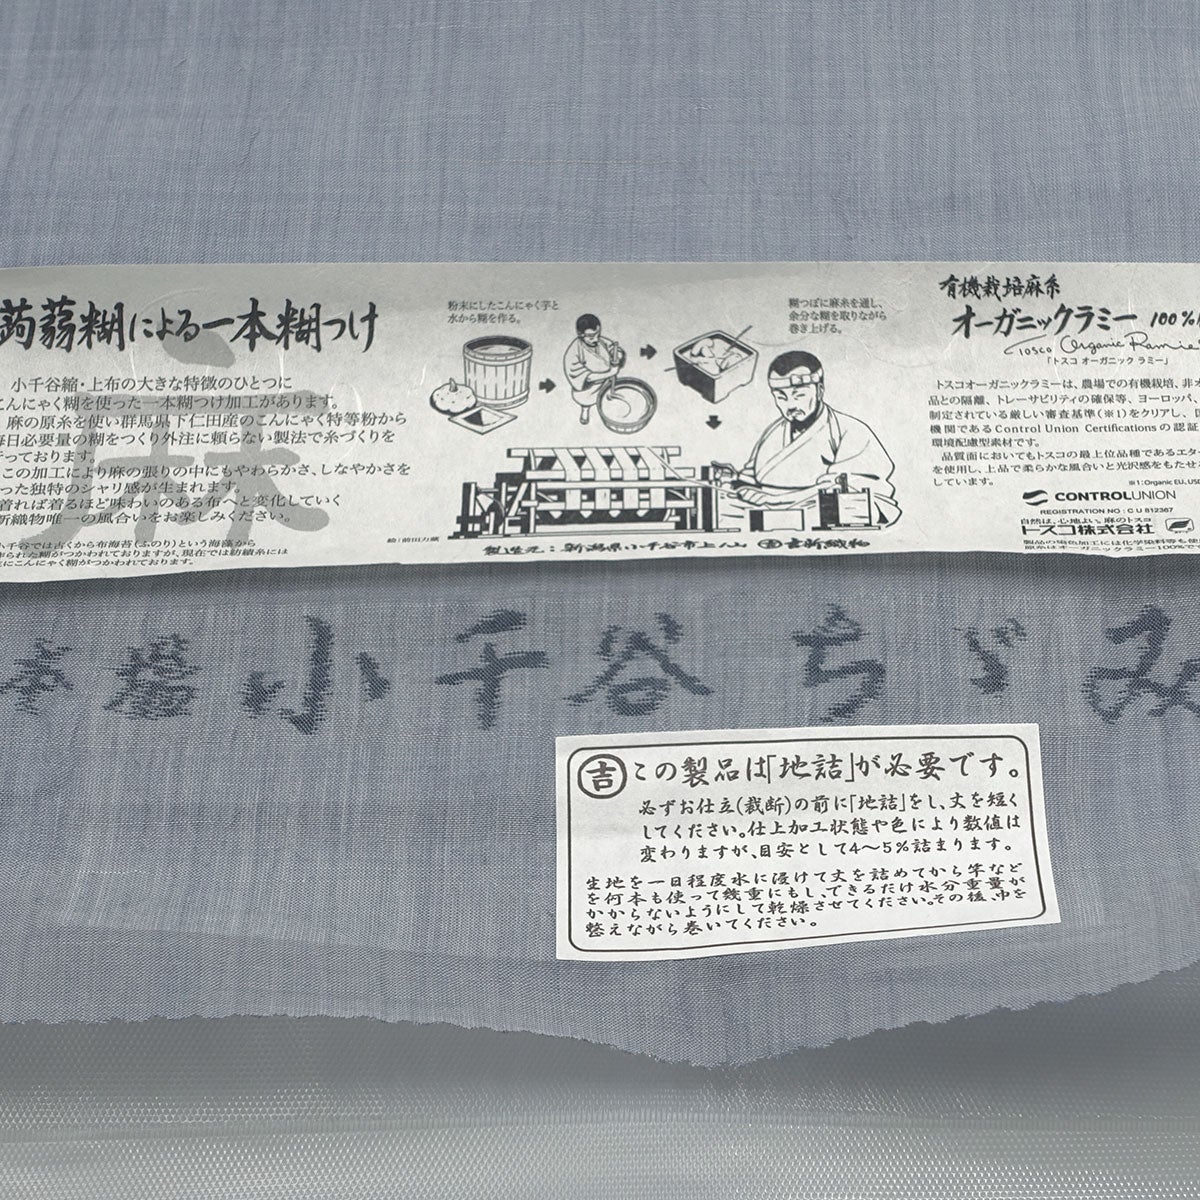 蒟蒻糊による一本糊つけ
小千谷縮・上布の大きな特徴のひとつに
こんにゃく糊を使った一本糊つけ加工があります。
麻の原糸を使い群馬県下仁田産のこんにゃく特等粉から
毎日必要量の糊をつくり外注に頼らない製法で糸づくりを
行っております。
この加工により麻の張りの中にもやわらかさ、しなやかさを
った独特のシャリ感が生まれます。
着れば着るほど味わいのある布へと変化していく
新織物唯一の風合いをお楽しみください。
小千谷では古くから布海苔(ふのり)という海藻から
作られた糊がつかわれておりますが、現在では紡績糸には
にこんにゃく糊がつかわれております。
麻
粉末にしたこんにゃく芋と
水から糊を作る。
糊つぼに麻糸を通し、
余分な糊を取りながら
巻き上げる。
絵:前田力蔵
製造元:新潟県小千谷市上ノ山 吉 吉新織物
有機栽培麻糸
オーガニックラミー 100%
TOSCO Organic Ramie
「トスコ オーガニック ラミー」
トスコオーガニックラミーは、農場での有機栽培、非木
品との隔離、トレーサビリティの確保等、ヨーロッパ、
制定されている厳しい審査基準(※1)をクリアし、
機関であるControl Union Certificationsの認証
環境配慮型素材です。
品質面においてもトスコの最上位品種であるエター
を使用し、上品で柔らかな風合いと光沢感をもたせ
しています。
※1:Organic EU,USD
CONTROLUNION
REGISTRATION NO : C U 812367
自然は、心地よい。麻のトスコ
トスコ株式会社
製品の染色加工には化学染料等も使
原糸はオーガニックラミー100%で
本場小千谷ちゞみ
吉 この製品は「地詰」が必要です。
必ずお仕立(裁断)の前に「地詰」をし、丈を短く
してください。仕上加工状態や色により数値は
変わりますが、目安として4〜5%詰まります。
生地を一日程度水に浸けて丈を詰めてから竿など
を何本も使って幾重にもし、できるだけ水分重量が
かからないようにして乾燥させてください。その後、巾を
整えながら巻いてください。